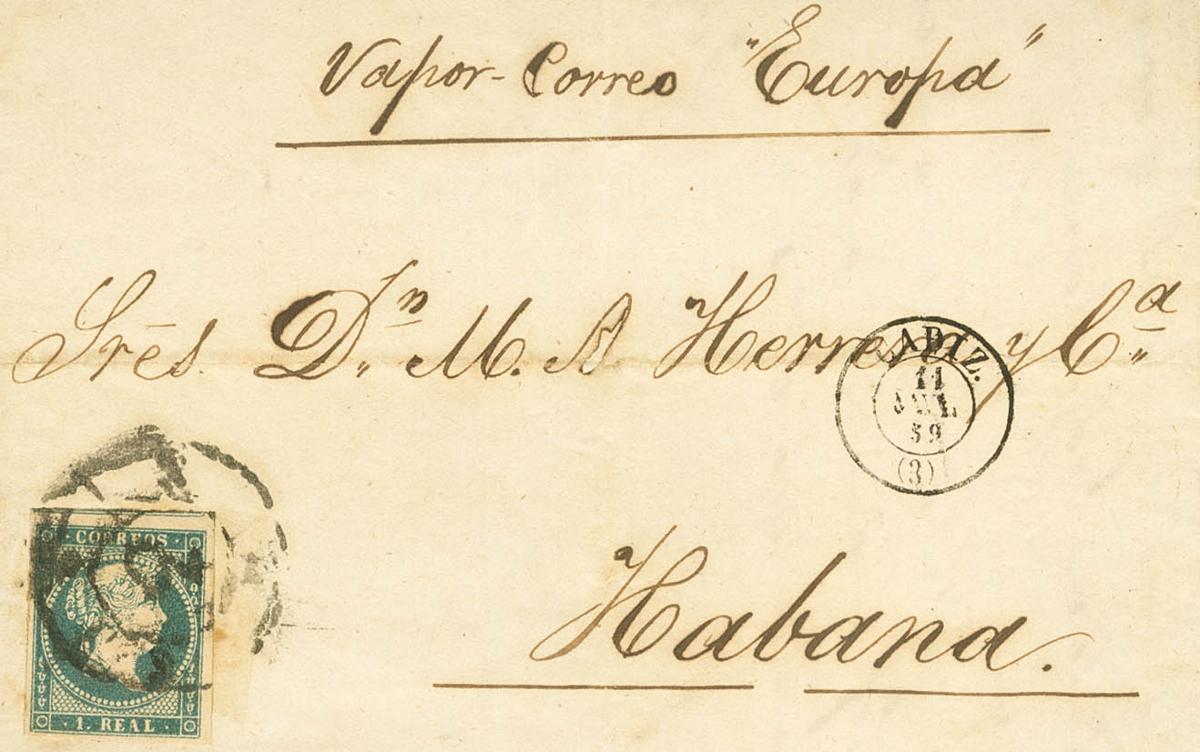 Vapor-Correo "Europa"
Srēs. Dⁿ. M. A Herrera y Cª
CADIZ.
11
JUL
59
(3)
CORREOS
1. REAL
Habana.